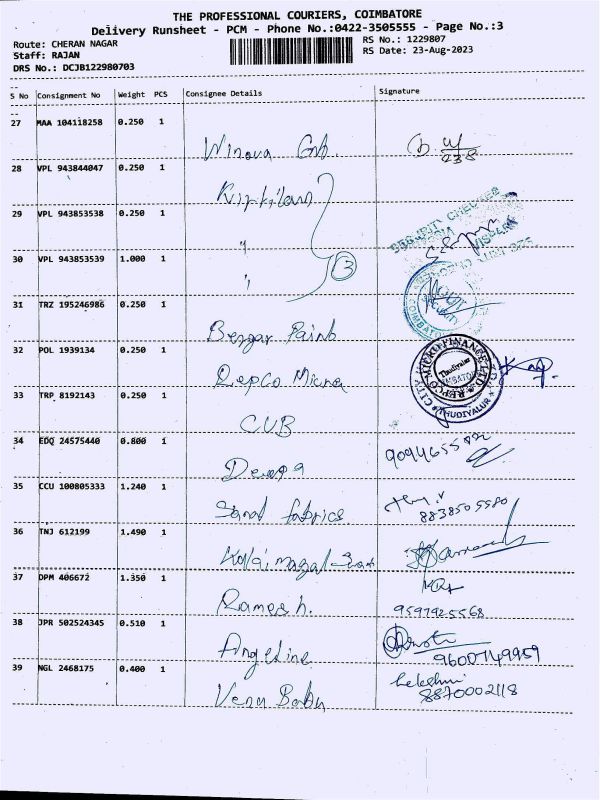 THE PROFESSIONAL COURIERS, COIMBATORE
Delivery Runsheet - PCM - Phone No.:0422-3505555 - Page No.:3
Route: CHERAN NAGAR
RS No.: 1229807
Staff: RAJAN
RS Date: 23-Aug-2023
DRS No.: DCJB122980703
S No Consignment No Weight PCS Consignee Details Signature
27 MAA 104118258 0.250 1
Winova
28 VPL 943844047 0.250 1
29 VPL 943853538 0.250 1
SECURITY CHECKED
"
30 VPL 943853539 1.000 1
" 3
COIMBATORE
31 TRZ 195246986 0.250 1
Berger Paints
32 POL 1939134 0.250 1
Repco Micro
REPCO MICROFINANCE LTD
Thudiyalur
THUDIYALUR
33 TRP 8192143 0.250 1
CUB
34 EDQ 24575440 0.800 1
Deepa
35 CCU 100805333 1.240 1
Sand fabrics
8838505580
36 TNJ 612199 1.490 1
Kalaimagal
37 DPM 406672 1.350 1
Ramesh.
9597925568
38 JPR 502524345 0.510 1
Angeline
9600749959
39 NGL 2468175 0.400 1
Venu Babu
Lekshmi
8870002118